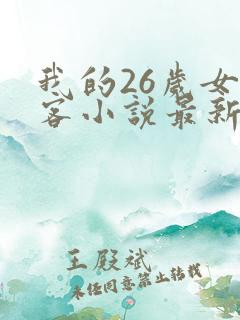 我的26岁女
客小说最新
王殿斌
未经同意禁止转载